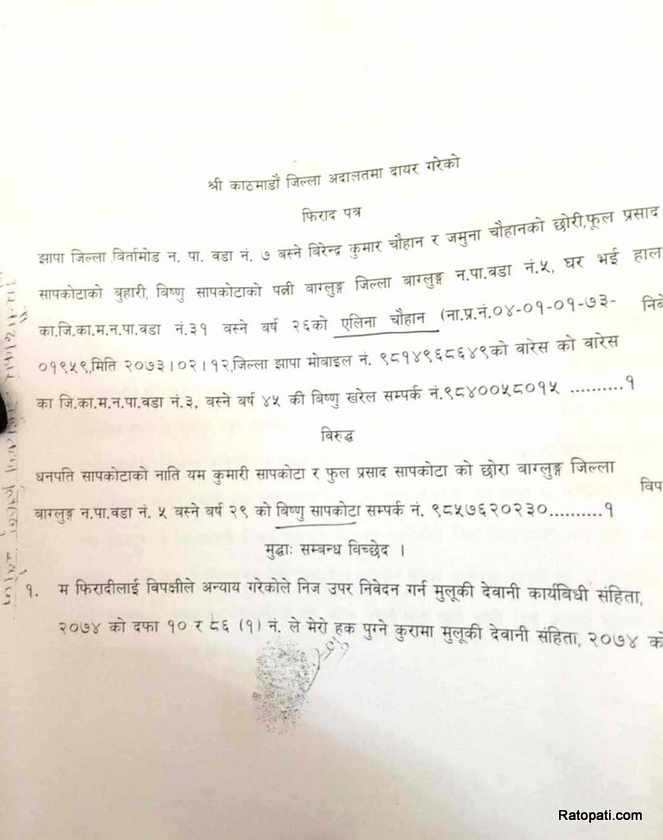 श्री काठमाडौं जिल्ला अदालतमा दायर गरेको
फिराद पत्र
झापा जिल्ला विर्तामोड न. पा. वडा नं. ७ बस्ने बिरेन्द्र कुमार चौहान र जमुना चौहानको छोरी,फूल प्रसाद
सापकोटाको बुहारी, विष्णु सापकोटाको पत्नी बाग्लुङ्ग जिल्ला बाग्लुङ्ग न.पा.वडा नं.५, घर भई हाल
का.जि.का.म.न.पा.वडा नं.३१ बस्ने वर्ष २६को एलिना चौहान (ना.प्र.नं.०४-०१-०१-७३- निवे
०१९५९,मिति २०७३।०२।१२,जिल्ला झापा मोबाइल नं. ९८१४९६८६४९को वारेस को वारेस
का जि.का.म.न.पा.वडा नं.३, बस्ने बर्ष ४५ की बिष्णु खरेल सम्पर्क नं.९८४००५८०१५ ..........१
विरुद्ध
धनपति सापकोटाको नाति यम कुमारी सापकोटा र फुल प्रसाद सापकोटा को छोरा बाग्लुङ्ग जिल्ला
बाग्लुङ्ग न.पा.वडा नं. ५ बस्ने वर्ष २९ को बिष्णु सापकोटा सम्पर्क नं. ९८५७६२०२३०..........१ विप
मुद्धाः सम्बन्ध विच्छेद ।
१. म फिरादीलाई विपक्षीले अन्याय गरेकोले निज उपर निवेदन गर्न मुलूकी देवानी कार्यविधी संहिता,
२०७४ को दफा १० र ८६ (१) नं. ले मेरो हक पुग्ने कुरामा मुलूकी देवानी संहिता, २०७४ क
Ratopati.com